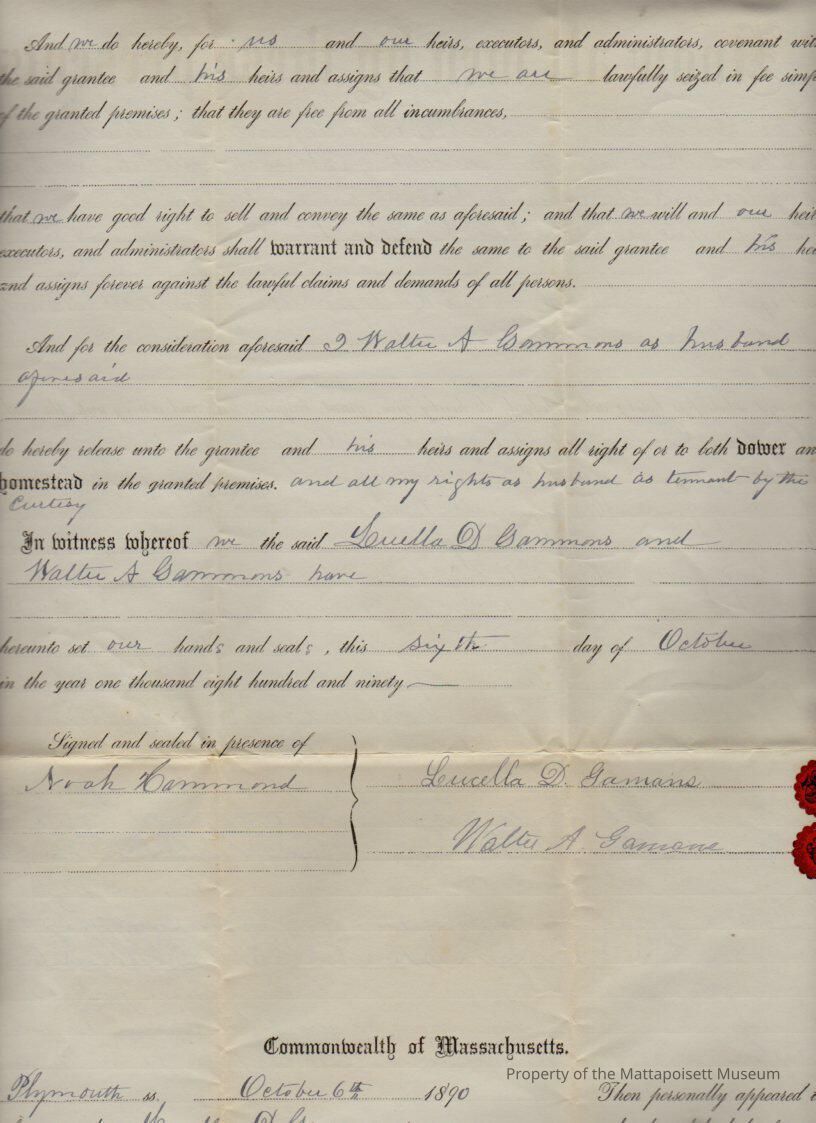 And we do hereby, for us and our heirs, executors, and administrators, covenant wit
the said grantee and his heirs and assigns that we are lawfully seized in fee simp
of the granted premises; that they are free from all incumbrances,
that we have good right to sell and convey the same as aforesaid; and that we will and our heir
executors, and administrators shall warrant and defend the same to the said grantee and his hei
and assigns forever against the lawful claims and demands of all persons.
And for the consideration aforesaid I Walter A Gammons as husband
aforesaid
do hereby release unto the grantee and his heirs and assigns all right of or to both dower an
homestead in the granted premises. and all my rights as husband as tennant by the
Curtesy
In witness whereof we the said Luella D Gammons and
Walter A Gammons have
hereunto set our hands and seals, this sixth day of October
in the year one thousand eight hundred and ninety
Signed and sealed in presence of
Noah Hammond
Lucella D. Gamans
Walter A Gamans
Commonwealth of Massachusetts.
Property of the Mattapoisett Museum
Plymouth ss. October 6th 1890 Then personally appeared